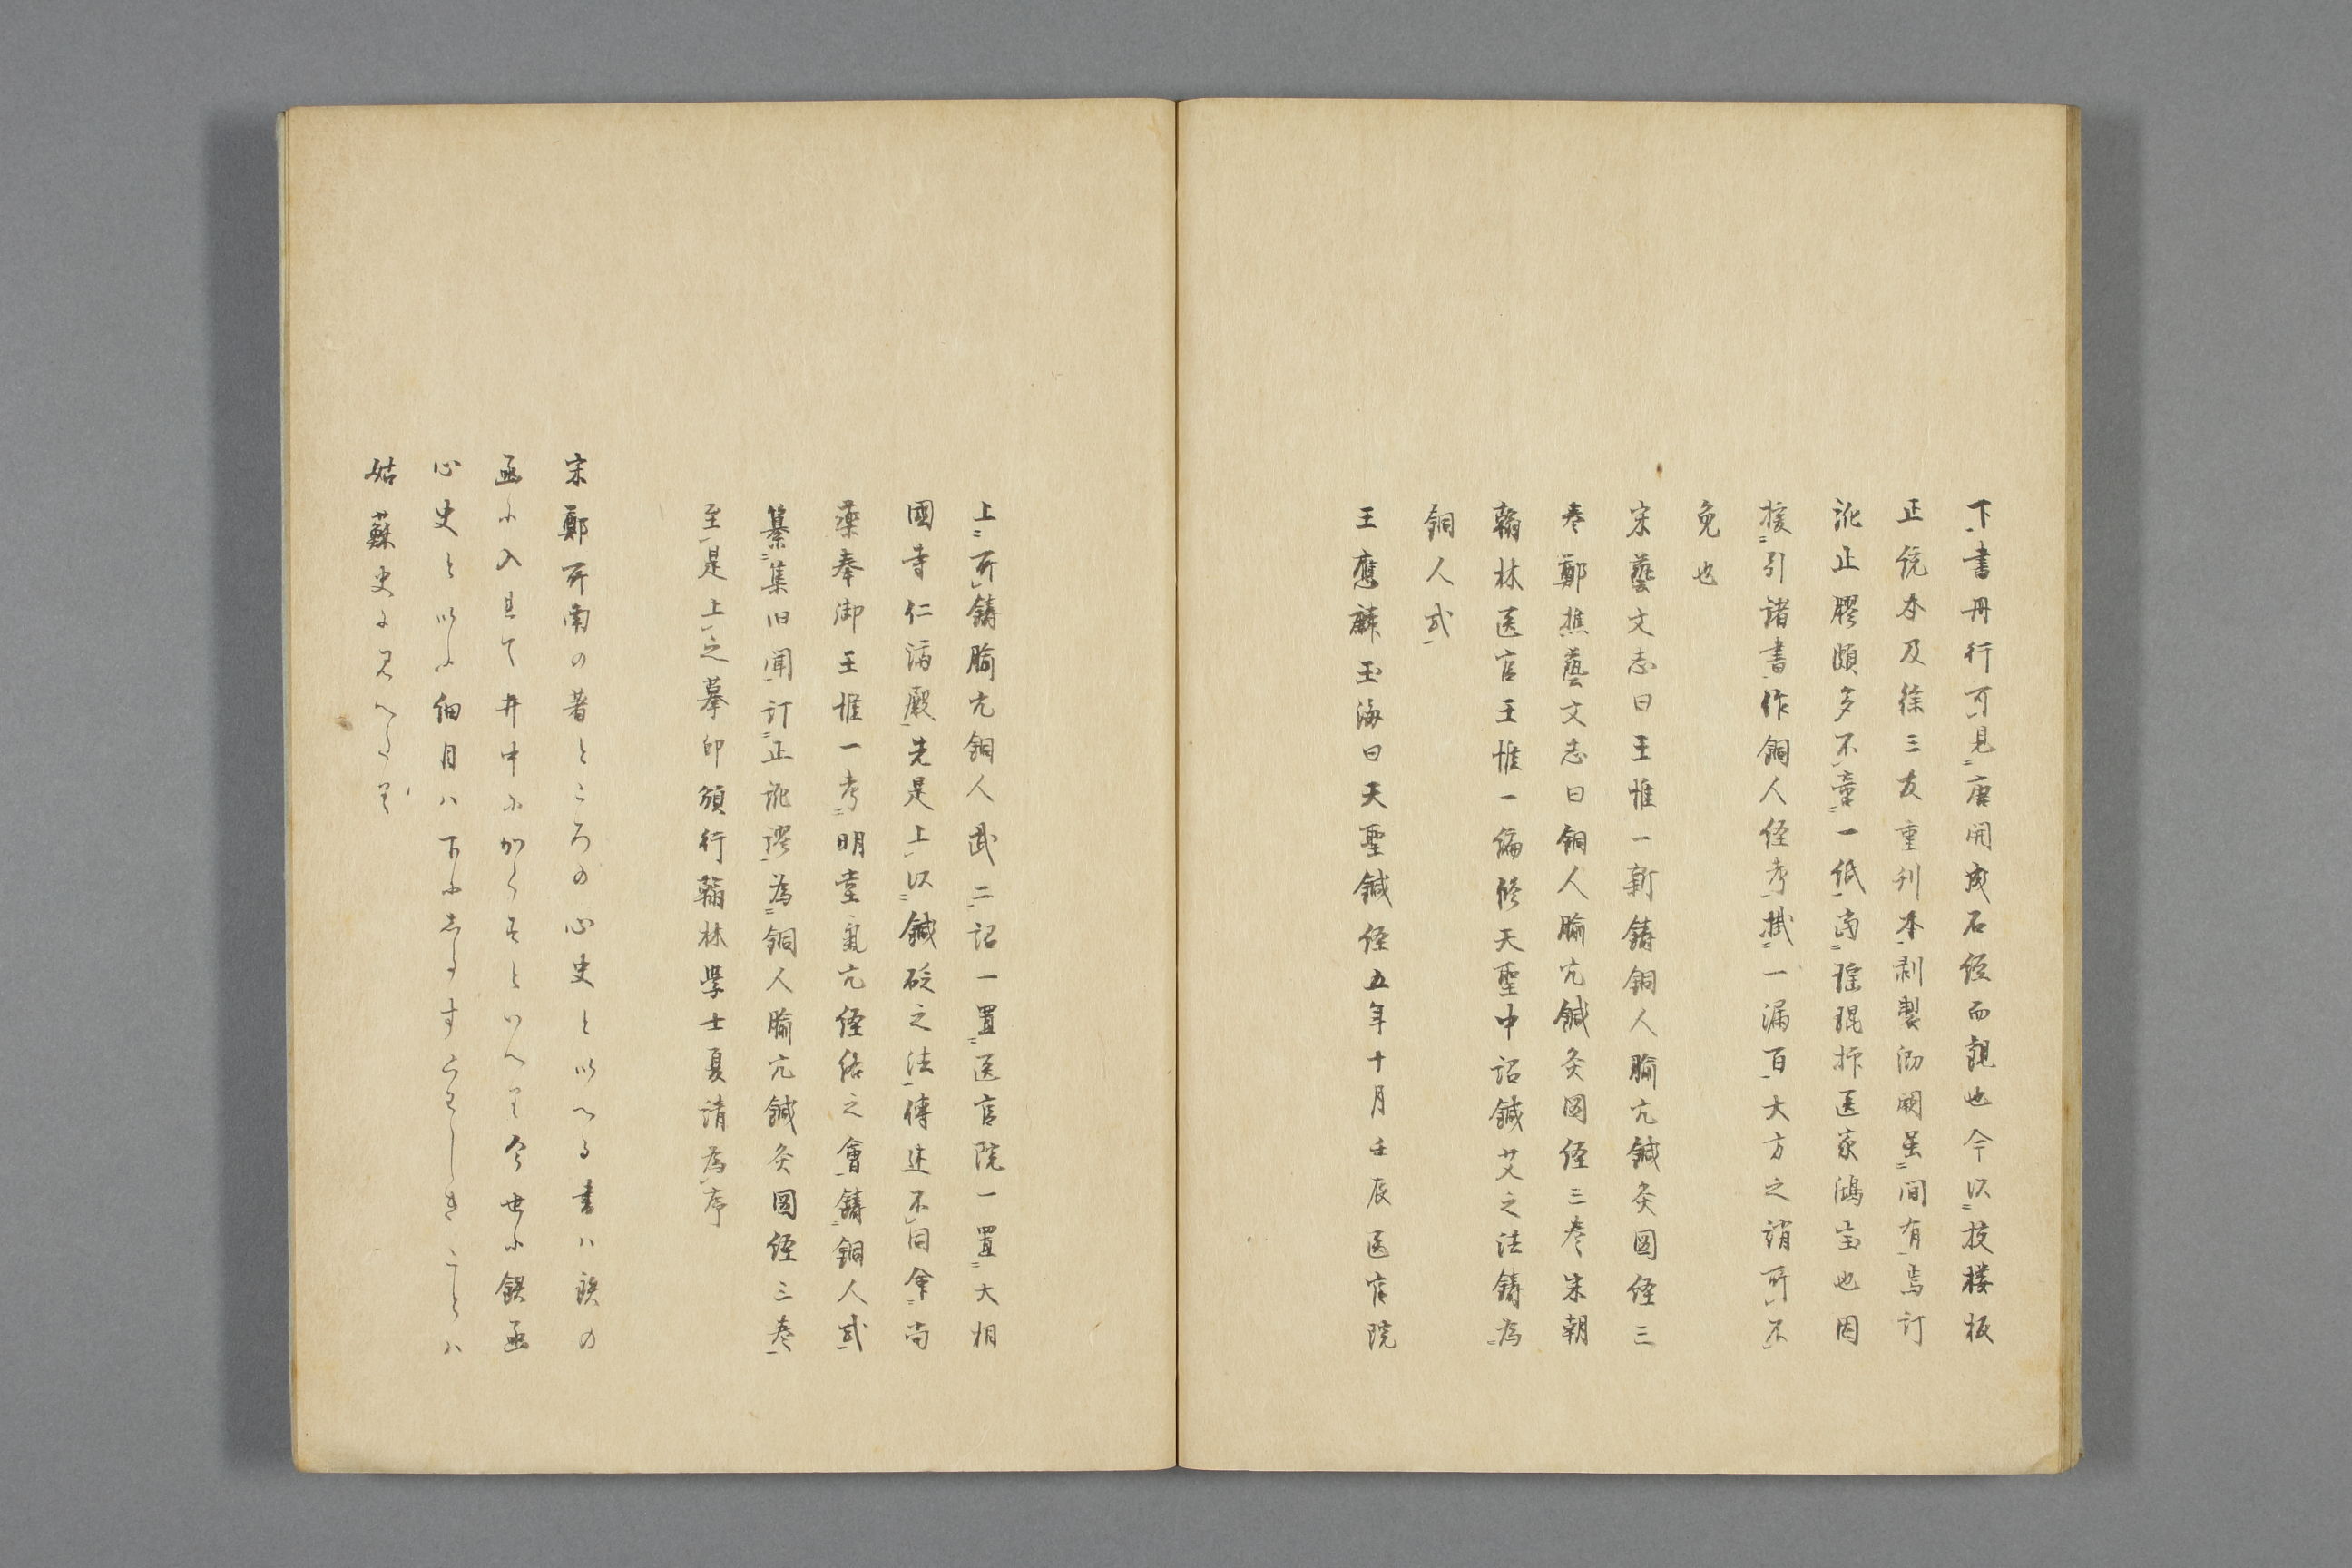 下書册行可見唐開成石経而観也今以技楼板
正統本及徐三友重刊本剥製泐闕虽間有焉訂
訛止膠頗多不啻一纸尚瑤琨抑医家鴻宝也因
援引諸書作銅人经考掛一漏百大方之誚所不
免也
宋藝文志曰王惟一新鋳銅人腧穴鍼灸図经三
巻鄭樵藝文志曰銅人腧穴鍼灸図经三巻宋朝
翰林医官王惟一编修天聖中詔鍼艾之法鋳為
銅人式
王應麟玉海曰天聖鍼经五年十月壬辰医官院
上所鋳腧穴銅人式二詔一置医官院一置大相
國寺仁済殿先是上以鍼砭之法傳述不同命尚
薬奉御王惟一考明堂氣穴经络之會鋳銅人式
纂集旧聞訂正訛謬為銅人腧穴鍼灸図经三巻
至是上之摹印頒行翰林學士夏竦為序
宋鄭所南の著ところの心史といへる書ハ鉄の
函に入且て井中にかくせしといへり今世に鉄函
心史といふ細目ハ下にしるすくわしきことハ
姑蘇史に見へたり